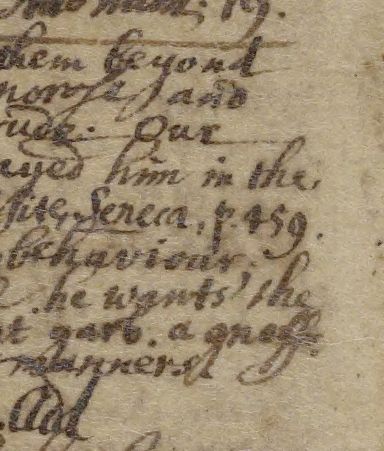 them beyond
morose, and
rude. Our
ayed him in the
site, Seneca, p. 459.
behaviour.
he wants the
garb. a
manners
Add